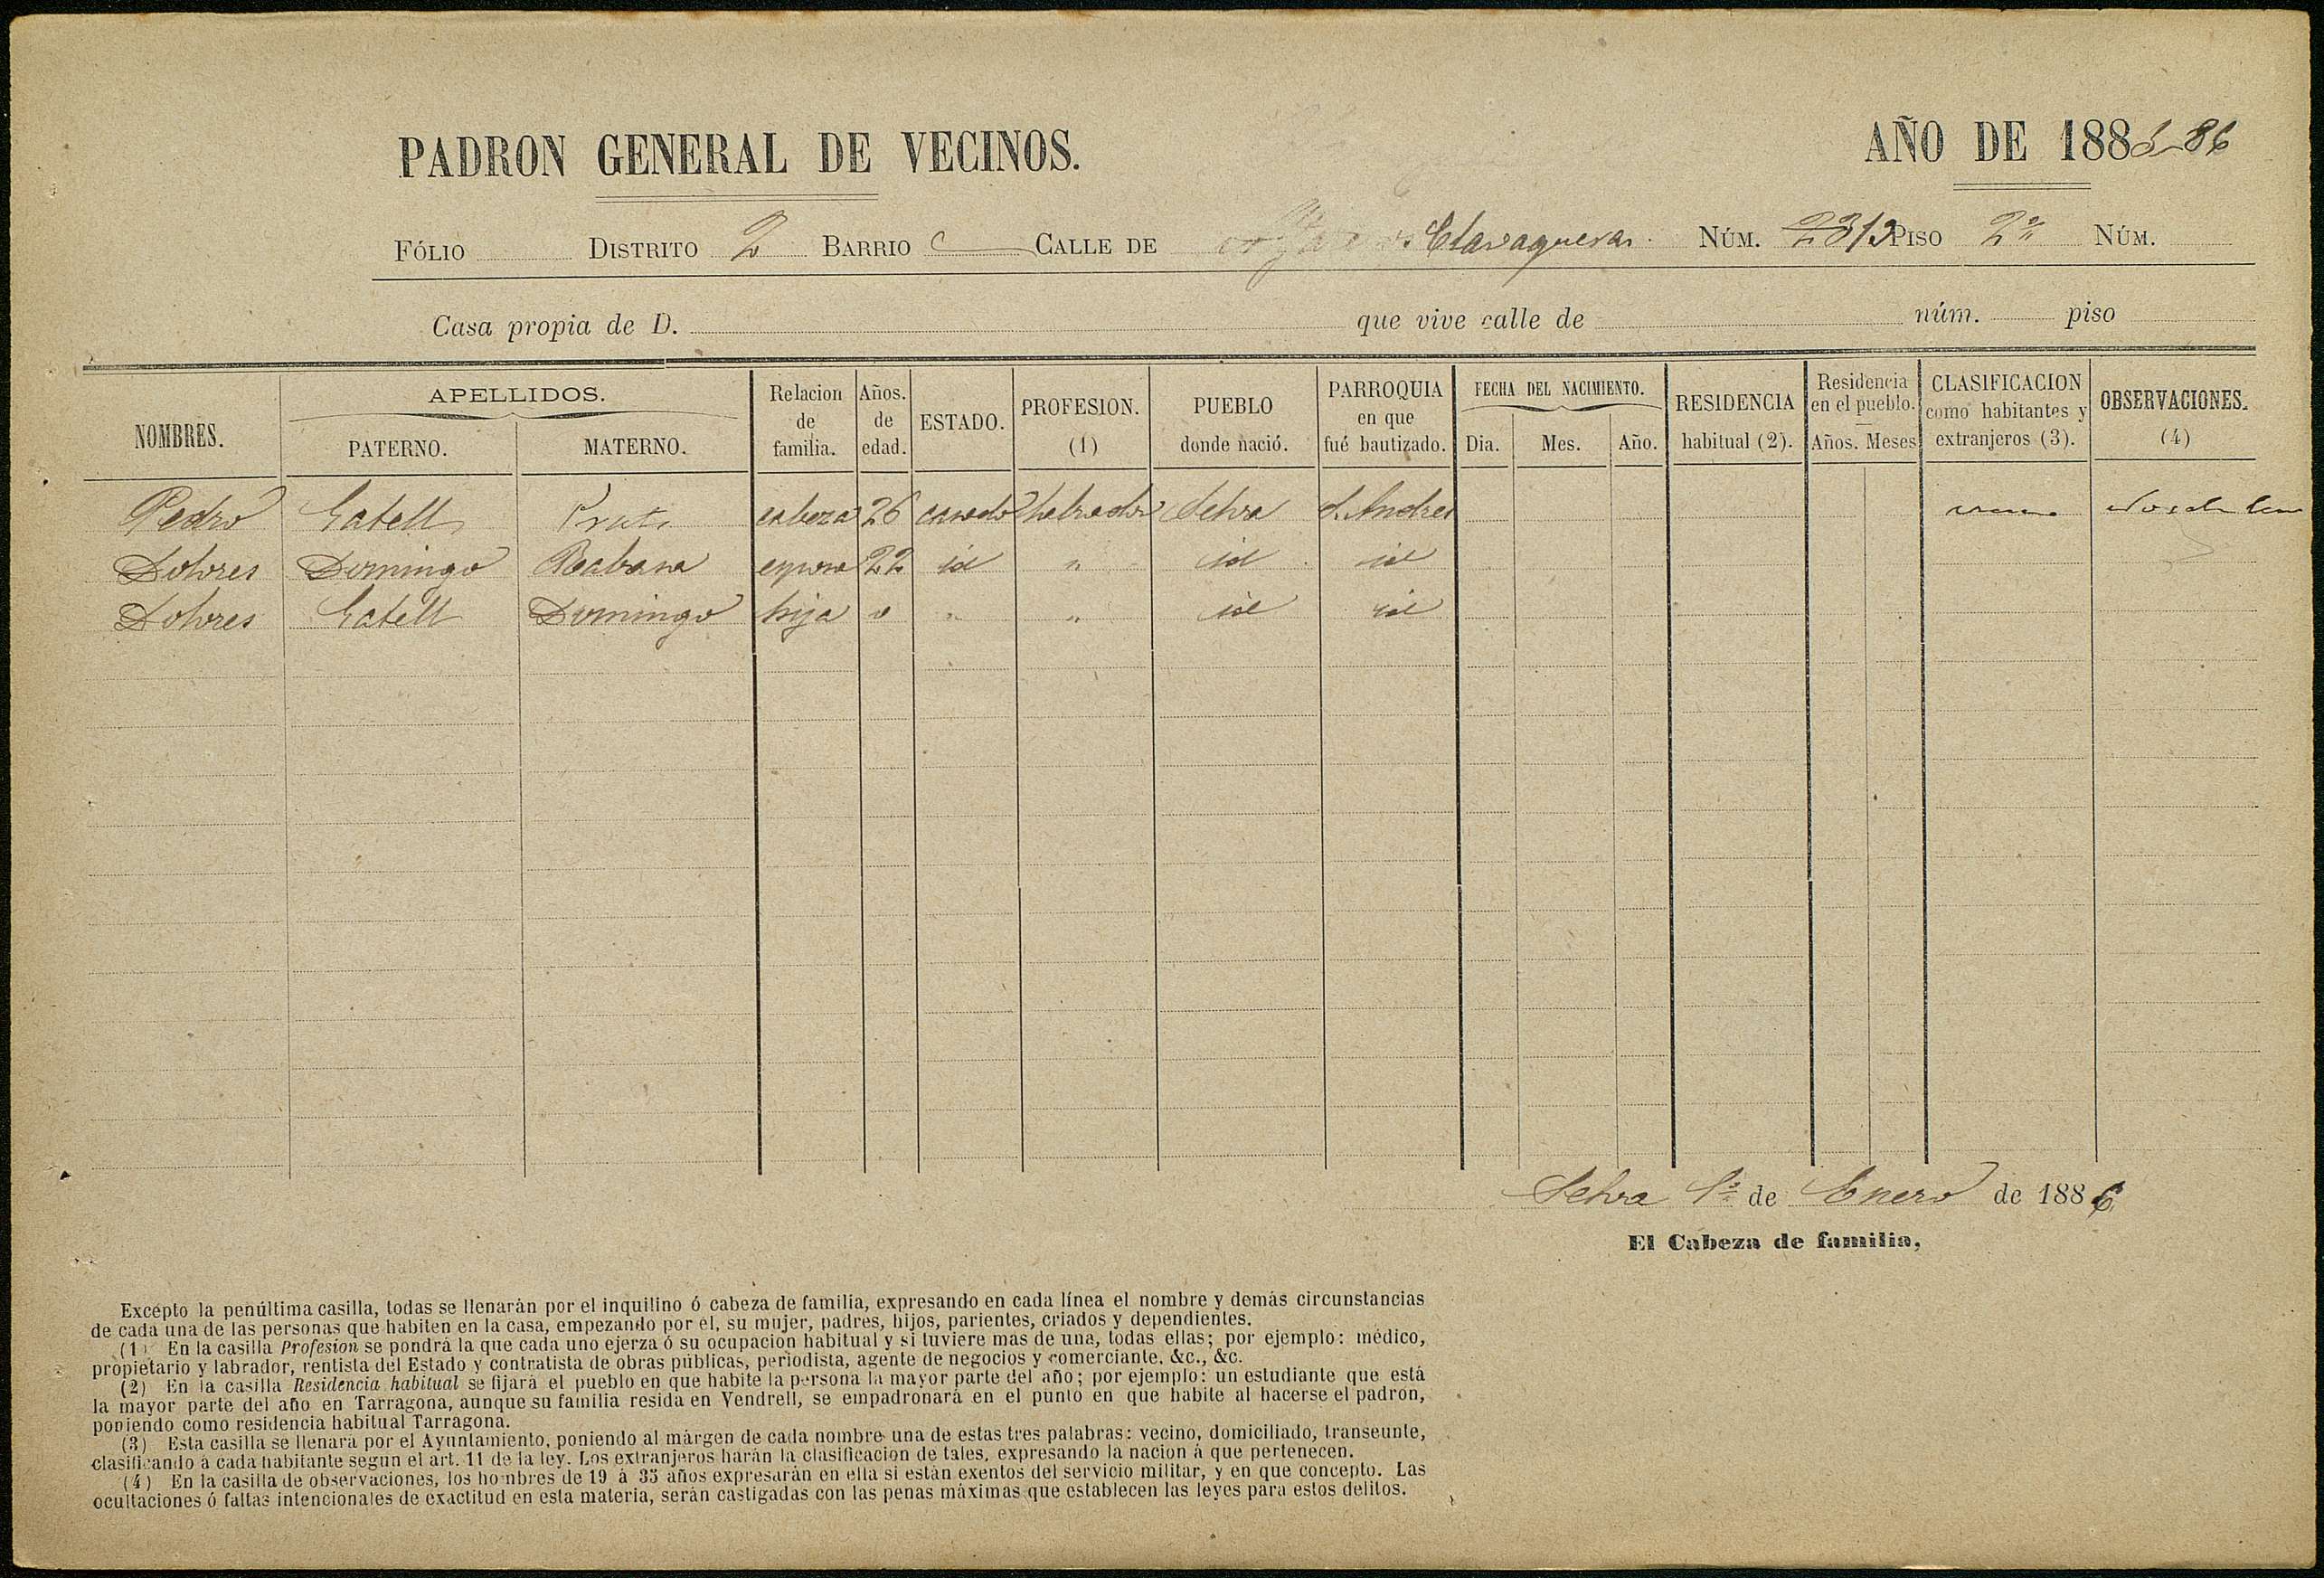 PADRON GENERAL DE VECINOS.
AÑO DE 1885-86
FÓLIO DISTRITO 2 BARRIO CALLE DE Clavagueras. NÚM. PISO 2º NÚM.
Casa propia de D. que vive calle de núm. piso
NOMBRES. APELLIDOS. PATERNO. MATERNO. Relacion de familia. Años. de edad. ESTADO. PROFESION. (1) PUEBLO donde nació. PARROQUIA en que fué bautizado. FECHA DEL NACIMIENTO. Dia. Mes. Año. RESIDENCIA habitual (2). Residencia en el pueblo. Años. Meses CLASIFICACION como habitantes y extranjeros (3). OBSERVACIONES. (4)
Pedro Gatell Prats cabeza 26 casado labrador Selva S. Andres
Dolores Domingo Rabasa esposa 22 id " id id
Dolores Gatell Domingo hija " " id id
Selva 1º de Enero de 1886
El Cabeza de familia,
Excepto la penúltima casilla, todas se llenarán por el inquilino ó cabeza de familia, expresando en cada línea el nombre y demás circunstancias
de cada una de las personas que habiten en la casa, empezando por el, su mujer, padres, hijos, parientes, criados y dependientes.
(1) En la casilla Profesion se pondrá la que cada uno ejerza ó su ocupacion habitual y si tuviere mas de una, todas ellas; por ejemplo: médico,
propietario y labrador, rentista del Estado y contratista de obras públicas, periodista, agente de negocios y comerciante. &c., &c.
(2) En la casilla Residencia habitual se fijará el pueblo en que habite la persona la mayor parte del año; por ejemplo: un estudiante que está
la mayor parte del año en Tarragona, aunque su familia resida en Vendrell, se empadronará en el punto en que habite al hacerse el padron,
poniendo como residencia habitual Tarragona.
(3) Esta casilla se llenará por el Ayuntamiento, poniendo al márgen de cada nombre una de estas tres palabras: vecino, domiciliado, transeunte,
clasificando á cada habitante segun el art. 11 de la ley. Los extranjeros harán la clasificacion de tales, expresando la nacion á que pertenecen.
(4) En la casilla de observaciones, los hombres de 19 á 35 años expresarán en ella si están exentos del servicio militar, y en que concepto. Las
ocultaciones ó faltas intencionales de exactitud en esta materia, serán castigadas con las penas máximas que establecen las leyes para estos delitos.